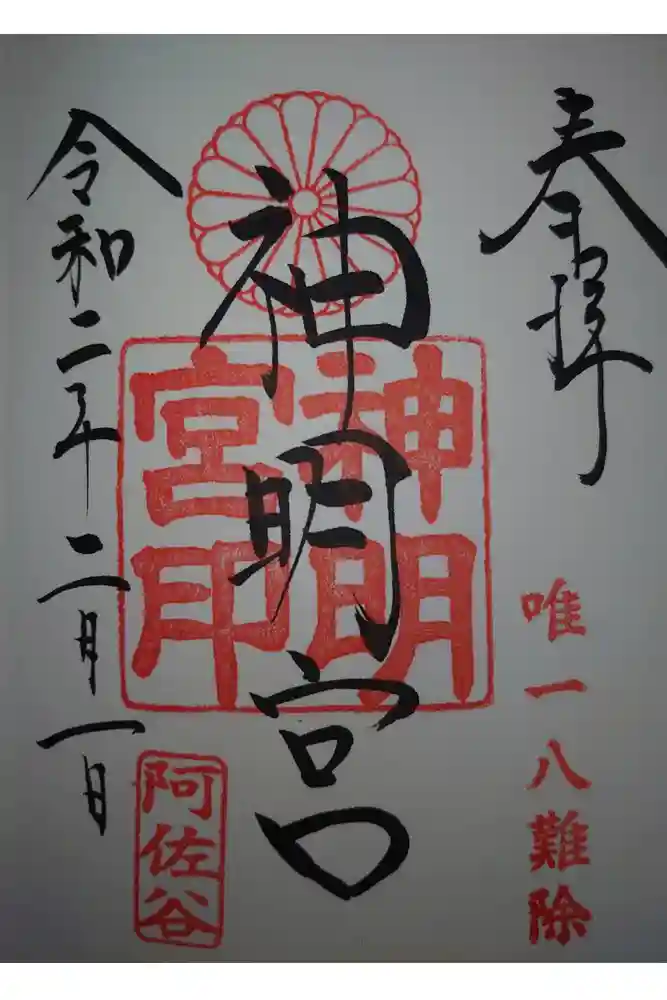 奉拝
唯一八難除
神明宮
神明
宮印
令和二年二月一日
阿佐谷